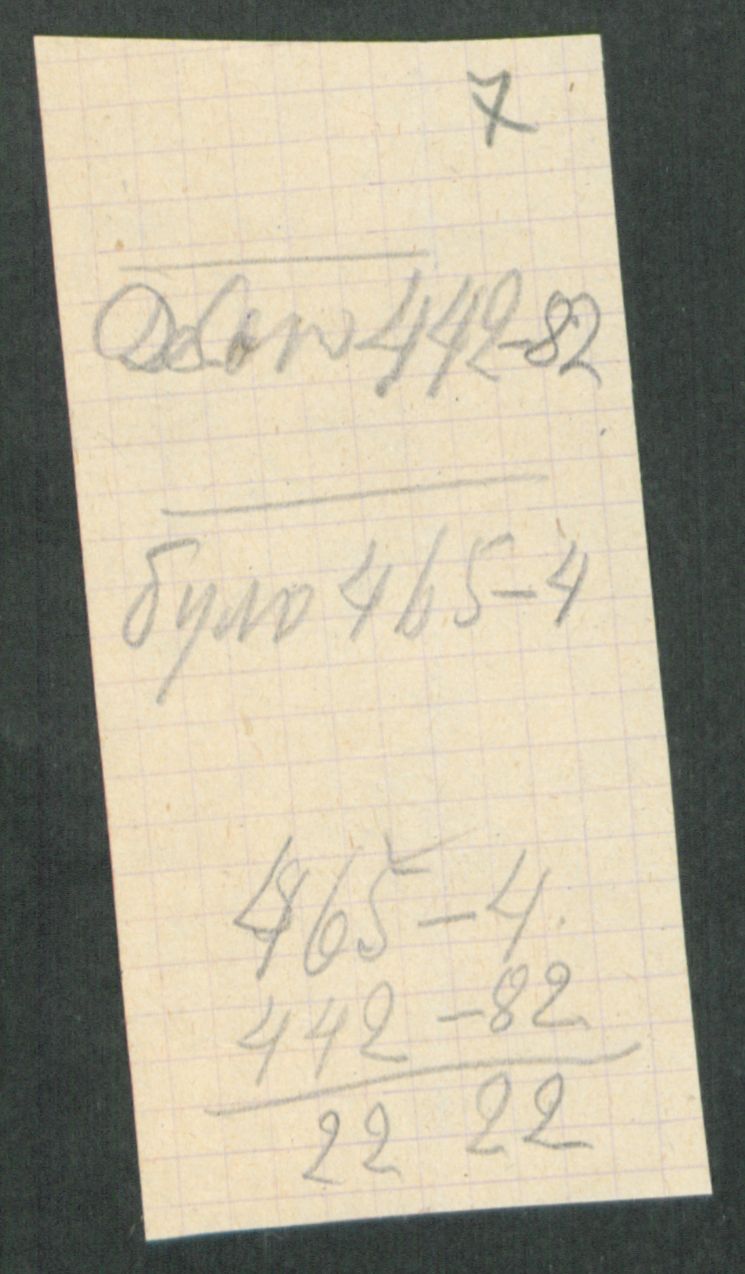 7
442-82
було 465-4
465-4
442-82
22 22